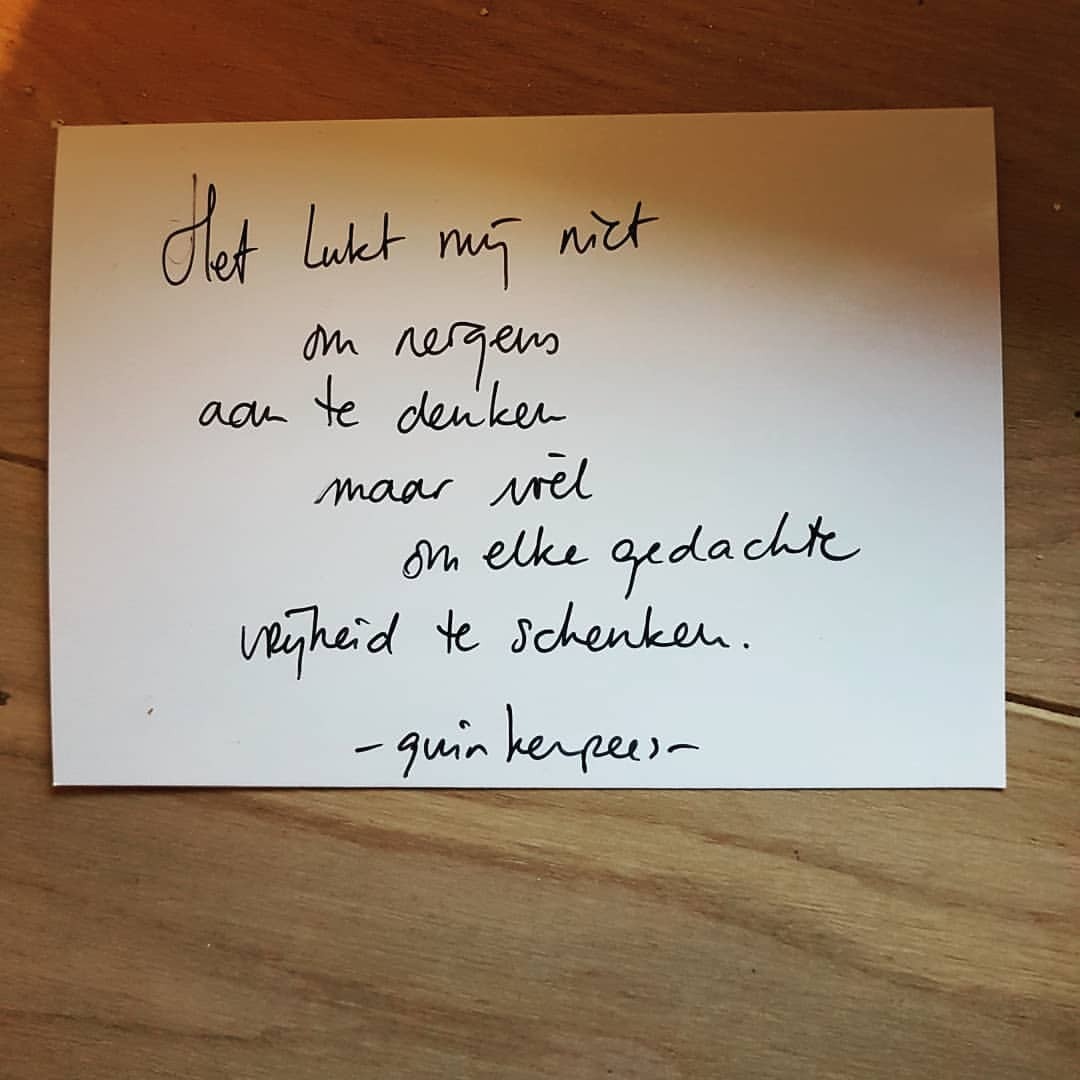 Het lukt mij niet
om nergens
aan te denken
maar wèl
om elke gedachte
vrijheid te schenken.
- quin